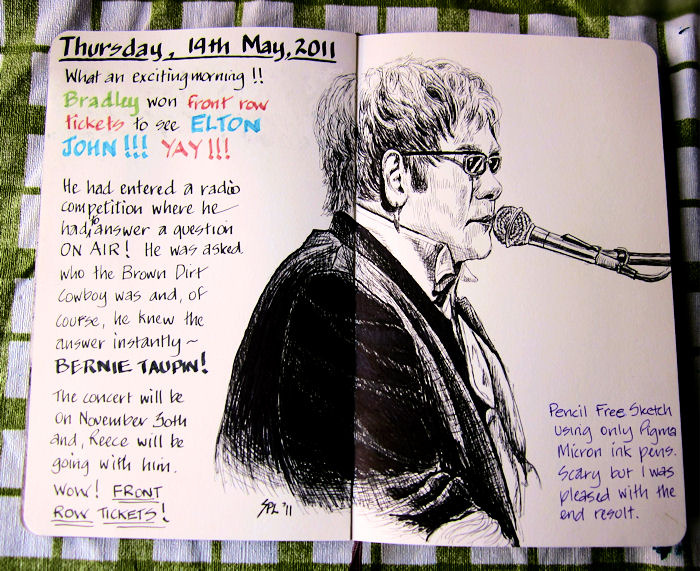 Thursday, 19th May, 2011
What an exciting morning !!
Bradley won front row
tickets to see ELTON
JOHN!!! YAY!!!
He had entered a radio
competition where he
had to answer a question
ON AIR! He was asked
who the Brown Dirt
Cowboy was and, of
course, he knew the
answer instantly ~
BERNIE TAUPIN!
The concert will be
on November 30th
and, Reece will be
going with him.
WOW! FRONT
ROW TICKETS!
SPL '11
Pencil Free Sketch
using only Pigma
Micron ink pens.
Scary but I was
pleased with the
end result.